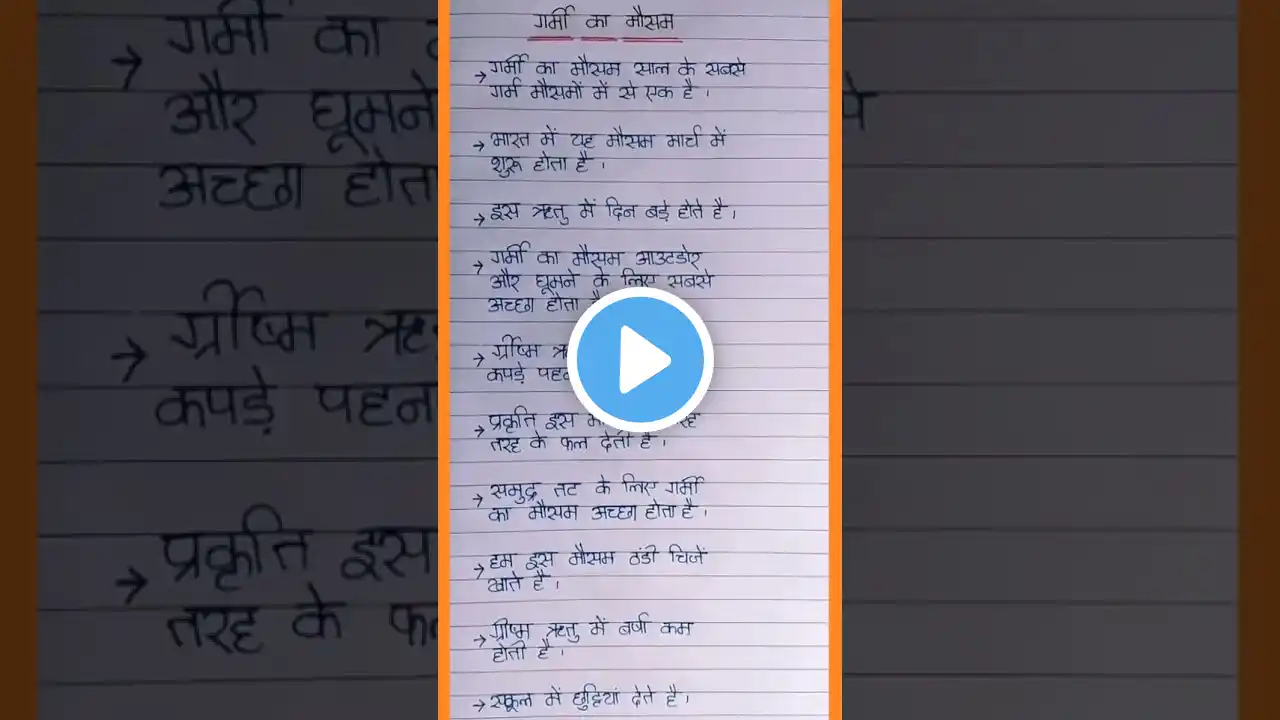 गर्मी का मौसम
→ गर्मी का मौसम साल के सबसे
गर्म मौसमों में से एक है ।
→ भारत में यह मौसम मार्च में
शुरू होता है ।
→ इस ऋतु में दिन बड़े होते है ।
→ गर्मी का मौसम आउटडोर
और घूमने के लिए सबसे
अच्छा होता
→ र्ग्रीष्म
कपड़े
→ प्रकृति इस
तरह के फल देती है ।
→ समुद्र तट के लिए गर्मी
का मौसम अच्छा होता है ।
→ हम इस मौसम ठंडी चिजें
खाते है ।
→ ग्रीष्म ऋतु में वर्षा कम
होती है ।
→ स्कूल में छुट्टियां देते है ।